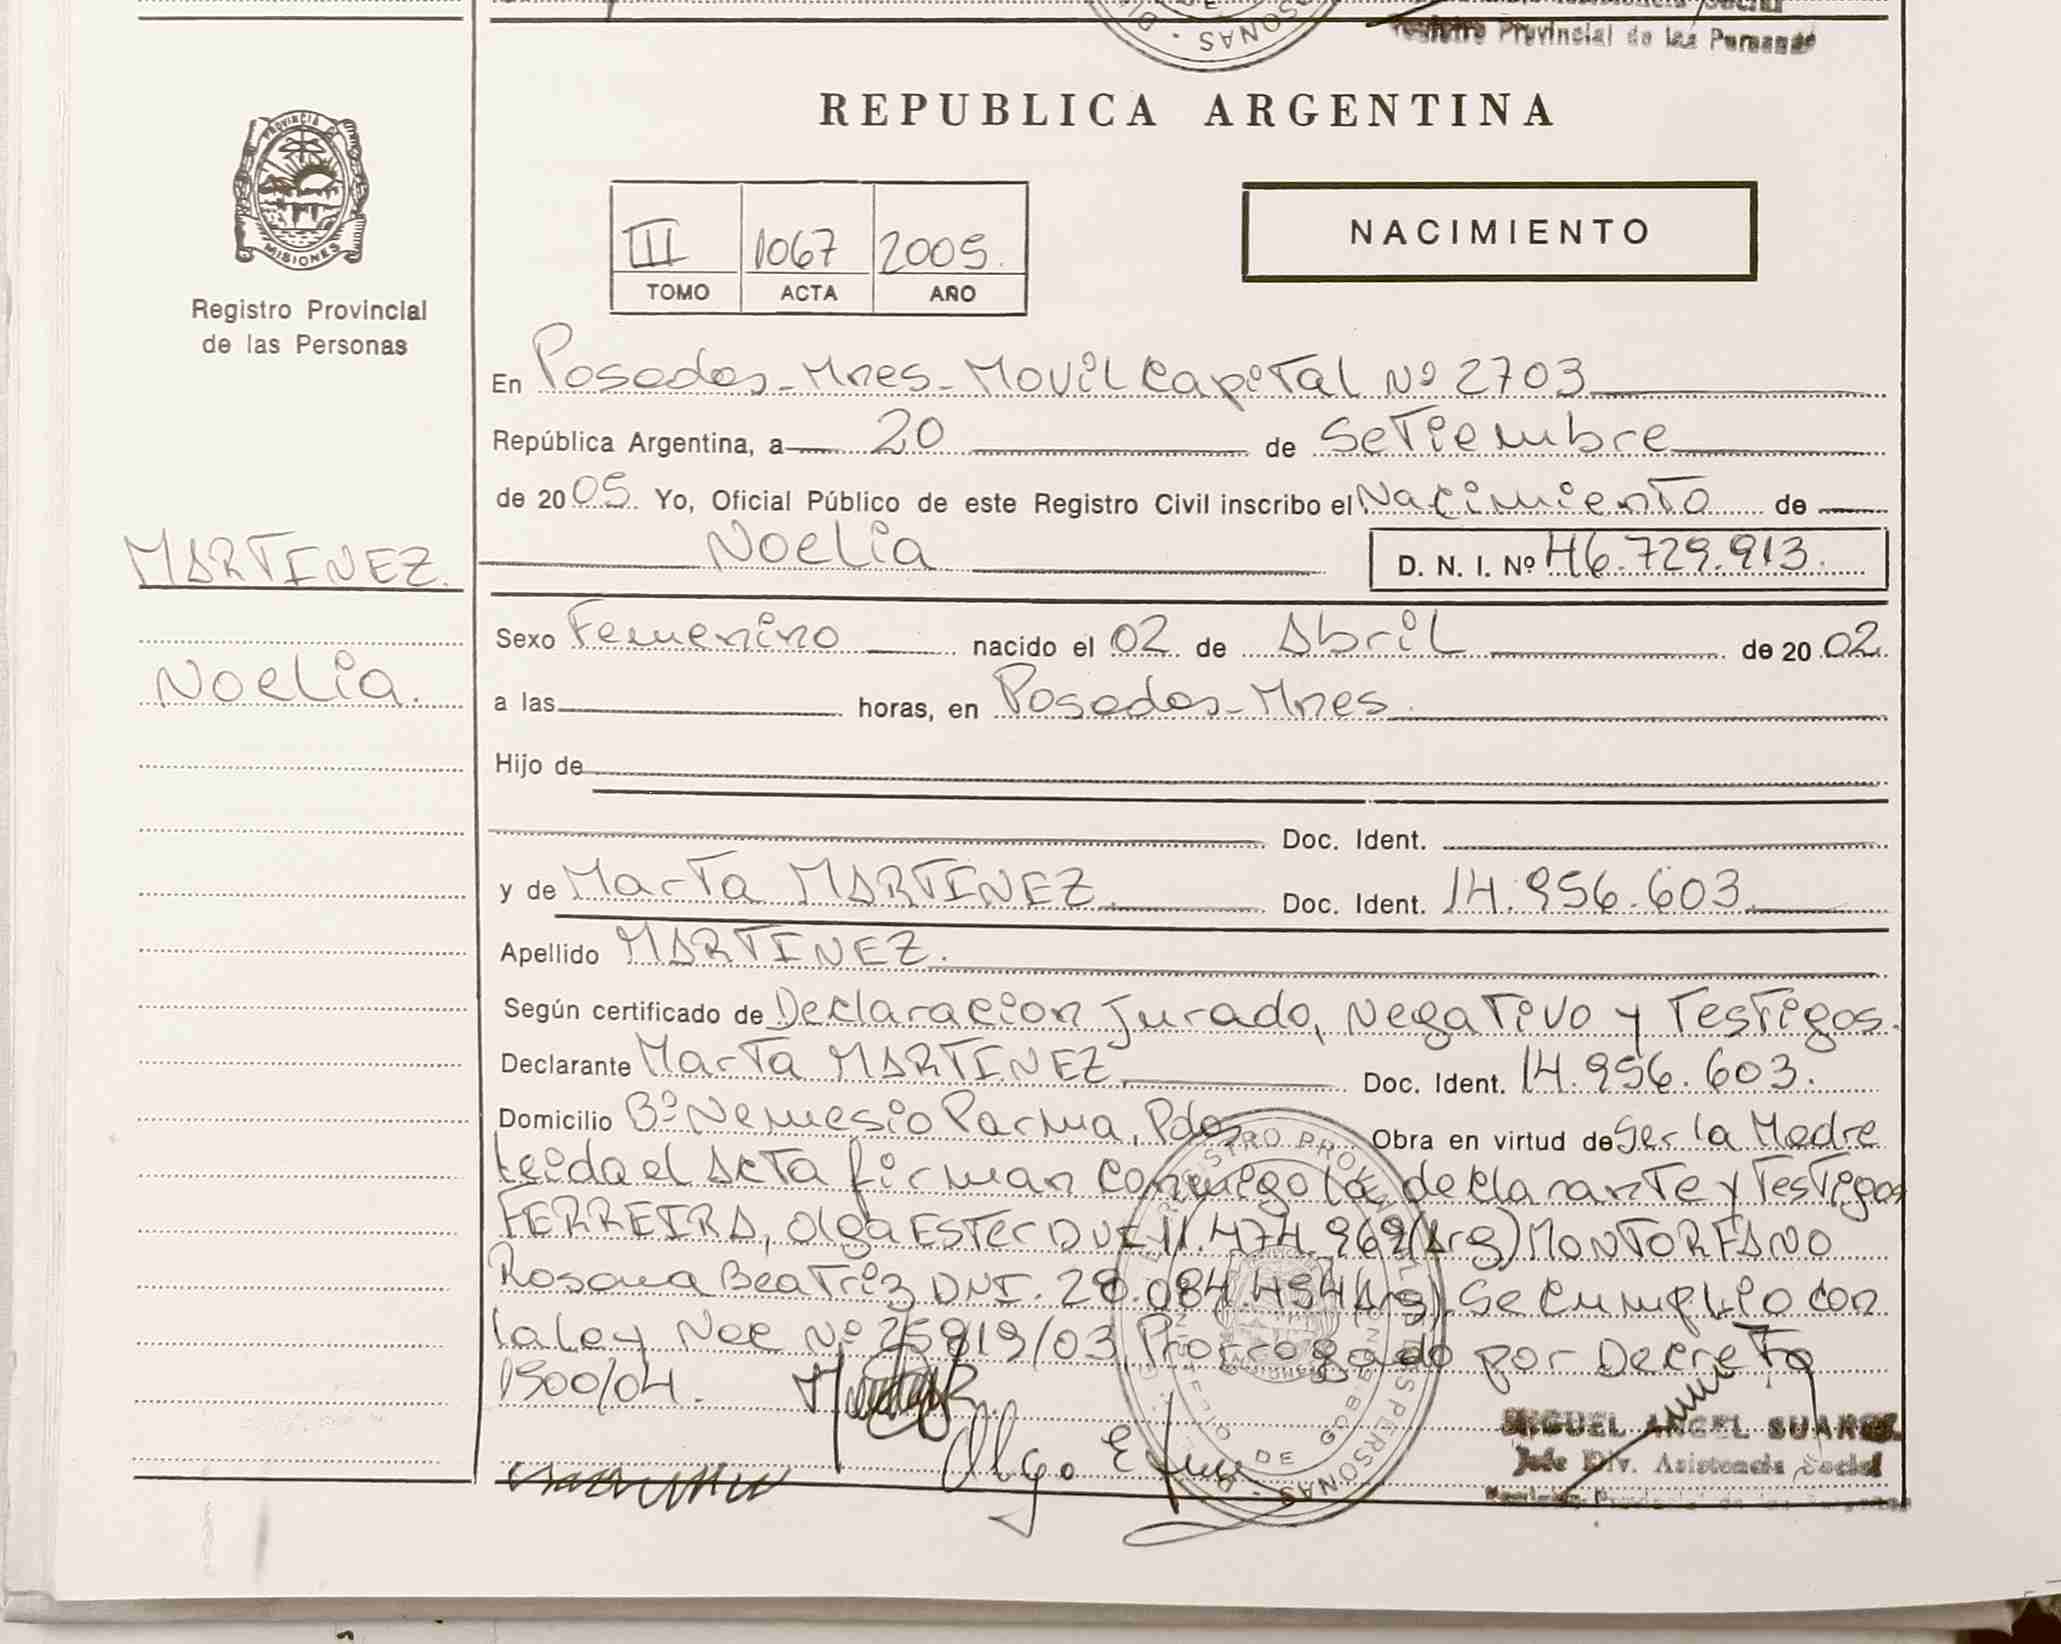 Registro Provincial de las Personas
REPUBLICA ARGENTINA
PROVINCIA DE
MISIONES
Registro Provincial
de las Personas
III 1067 2005.
TOMO ACTA AÑO
NACIMIENTO
En Posadas-Mnes-Movil Capital Nº 2703
República Argentina, a 20 de Setiembre
de 2005. Yo, Oficial Público de este Registro Civil inscribo el Nacimiento de
MARTINEZ.
Noelia D. N. I. Nº 46.729.913.
Sexo Femenino nacido el 02 de Abril de 2002.
Noelia.
a las horas, en Posadas-Mnes.
Hijo de
Doc. Ident.
y de Marta MARTINEZ. Doc. Ident. 14.956.603
Apellido MARTINEZ.
Según certificado de Declaracion Jurado, Negativo y Testigos.
Declarante Marta MARTINEZ Doc. Ident. 14.956.603.
Domicilio Bº Nemesio Parma, Pdas Obra en virtud de Ser la Madre
Leida el Acta firman conmigo la declarante y Testigos
FERREIRA, Olga Ester DNI 11.474.969 (Arg) MONTORFANO
Rosana Beatriz DNI. 28.084.494 (Arg). Se Cumplio con
la ley Nac Nº 25819/03 Prorrogado por Decreto
1900/04.
Olga E
MIGUEL ANGEL SUAREZ
Jefe Div. Asistencia Social